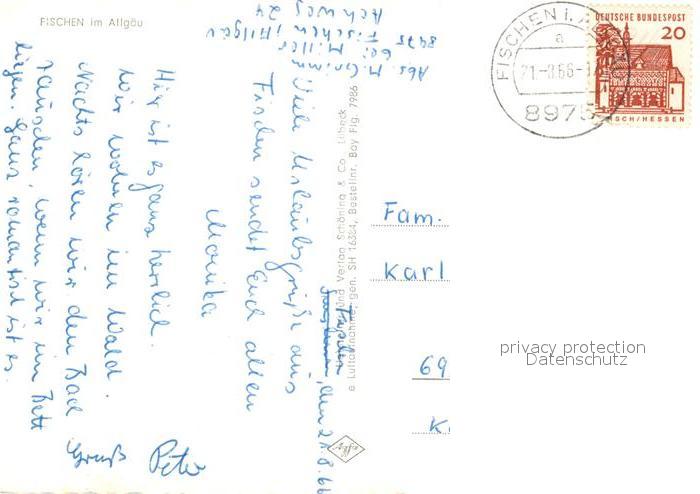 FISCHEN im Allgäu
Abs. M. Grimm
bei Miller
8975 Fischen, Allgäu
Achweg 24
Fischen, den 21.8.66
Viele Urlaubsgrüße aus
Fischen sendet Euch allen
Monika
Hier ist es ganz herrlich.
Wir wohnen im Wald.
Nachts hören wir den Bach
rauschen, wenn wir im Bett
liegen. Ganz romantisch ist es.
Gruß Peter
und Verlag Schöning & Co. Lübeck
Luftaufnahme, gen. SH 16384, Bestellnr. Bay Fig. 7986
FISCHEN i. A
a
21.-8.66-1
8975
DEUTSCHE BUNDESPOST
20
SCH/HESSEN
Fam.
Karl
69
K
privacy protection
Datenschutz